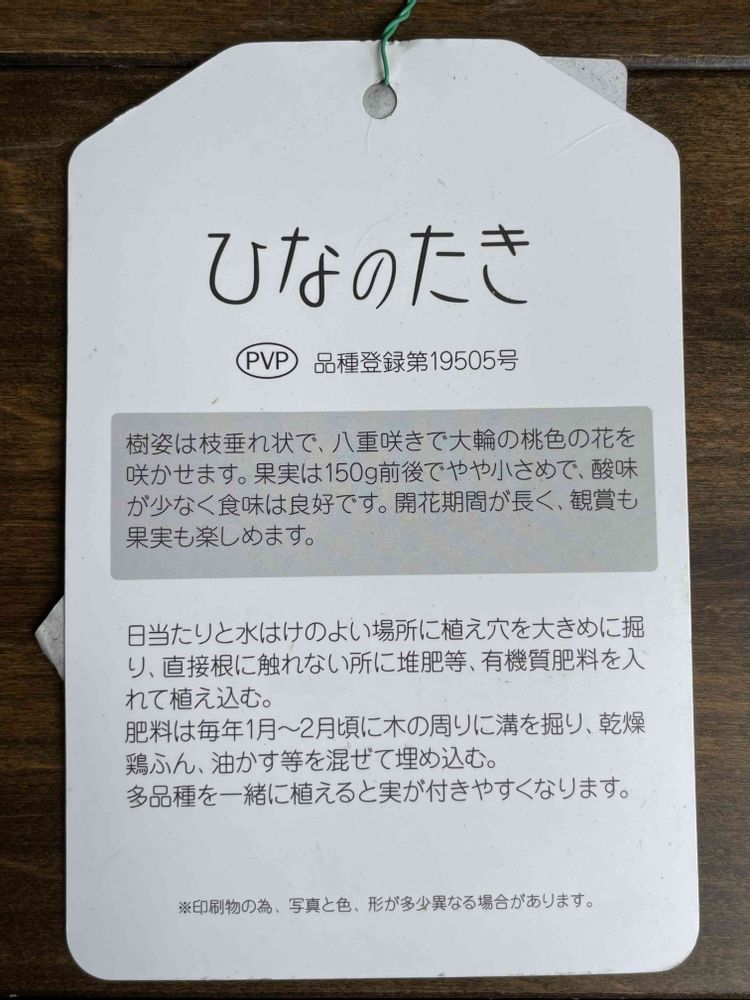 ひなのたき
PVP 品種登録第19505号
樹姿は枝垂れ状で、八重咲きで大輪の桃色の花を
咲かせます。果実は150g前後でやや小さめで、酸味
が少なく食味は良好です。開花期間が長く、観賞も
果実も楽しめます。
日当たりと水はけのよい場所に植え穴を大きめに掘
り、直接根に触れない所に堆肥等、有機質肥料を入
れて植え込む。
肥料は毎年1月～2月頃に木の周りに溝を掘り、乾燥
鶏ふん、油かす等を混ぜて埋め込む。
多品種を一緒に植えると実が付きやすくなります。
※印刷物の為、写真と色、形が多少異なる場合があります。